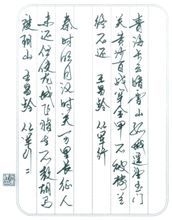 青海长云暗雪山孤城遥望玉门
关黄沙百战穿金甲不破楼兰
终不还 王昌龄 从军行
秦时明月汉时关万里长征人
未还但使龙城飞将在不教胡马
度阴山 王昌龄 从军行二